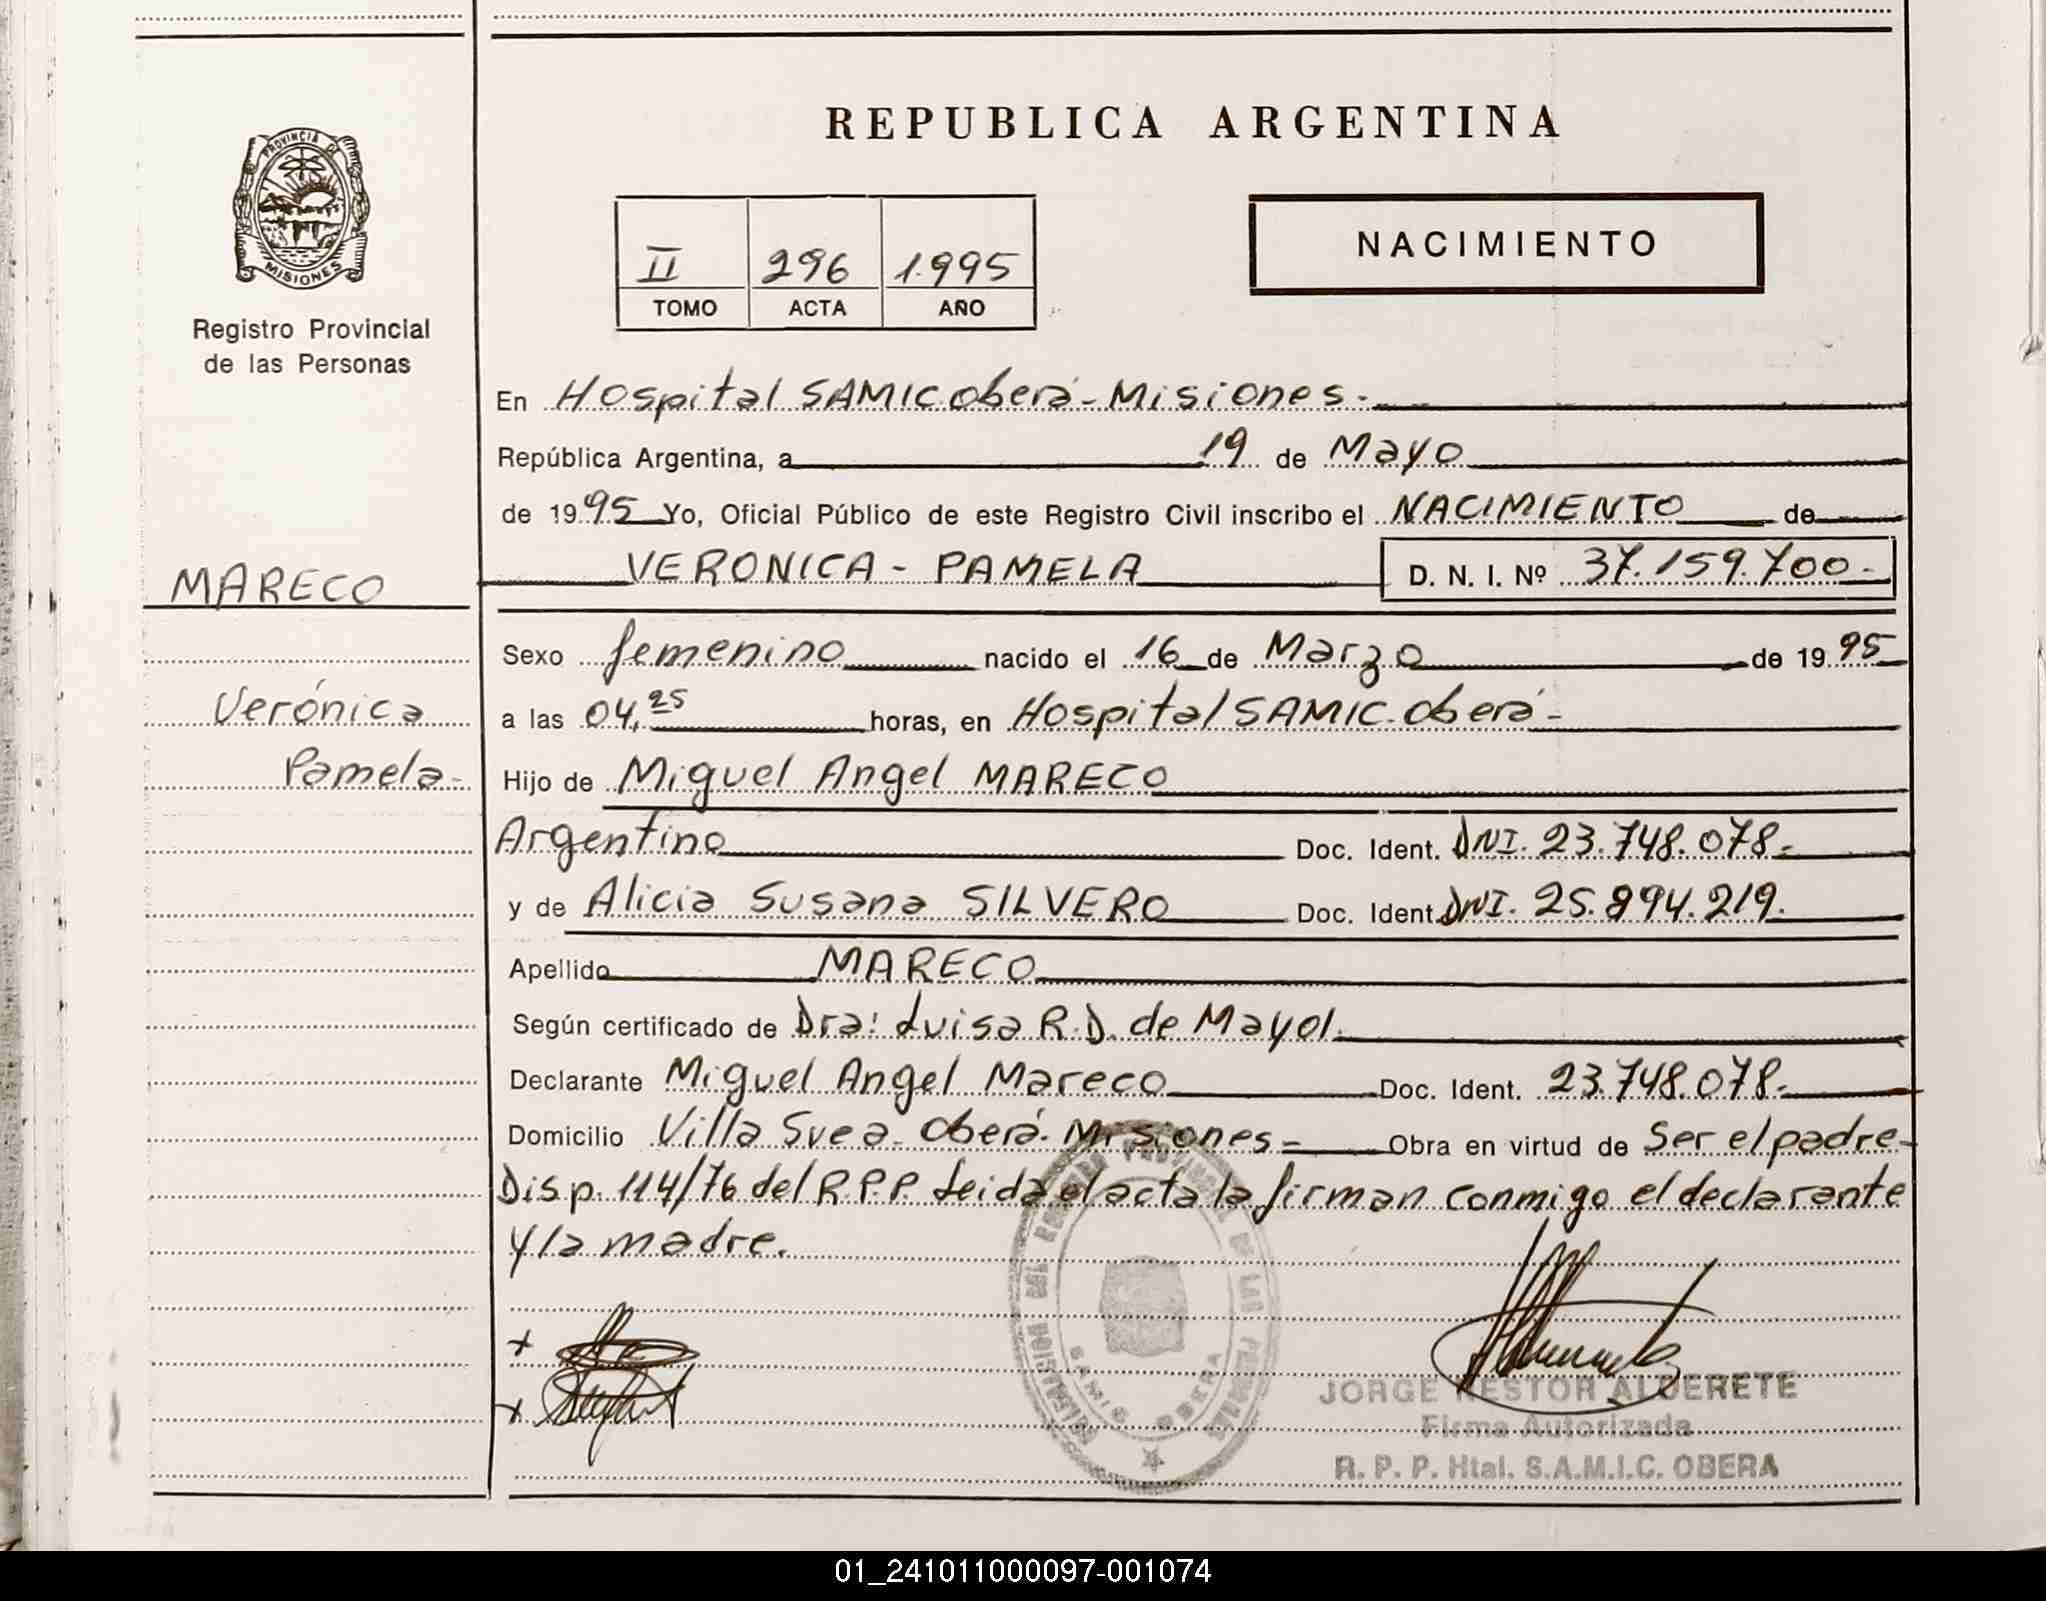 REPUBLICA ARGENTINA
PROVINCIA DE
MISIONES
Registro Provincial
de las Personas
II 296 1995
TOMO ACTA AÑO
NACIMIENTO
En Hospital SAMIC. oberá - Misiones.
República Argentina, a 19 de Mayo
de 1995 Yo, Oficial Público de este Registro Civil inscribo el NACIMIENTO de
MARECO
VERONICA - PAMELA D. N. I. Nº 37.159.700.-
Sexo femenino nacido el 16 de Marzo de 1995
Verónica
a las 04,25 horas, en Hospital SAMIC. oberá -
Pamela -
Hijo de Miguel Angel MARECO
Argentino Doc. Ident. DNI. 23.748.078.-
y de Alicia Susana SILVERO Doc. Ident. DNI. 25.894.219.
Apellido MARECO
Según certificado de Dra: Luisa R.D. de Mayol.
Declarante Miguel Angel Mareco Doc. Ident. 23.748.078.-
Domicilio Villa Svea - oberá. Misiones = Obra en virtud de Ser el padre -
Disp. 114/76 del R.P.P. Leida el acta la firman conmigo el declarante
y la madre.
SAMIC OBERA
JORGE NESTOR ALDERETE
Firma Autorizada
R. P. P. Htal. S.A.M.I.C. OBERA
01_241011000097-001074